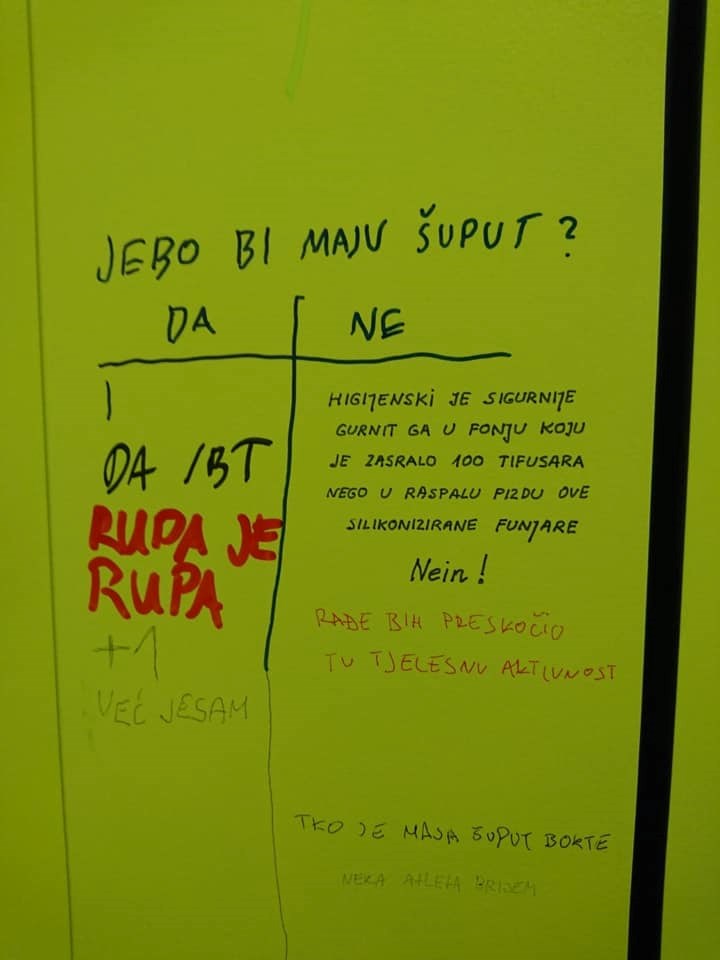 JEBO BI MAJU ŠUPUT?
DA
NE
|
DA /BT
RUPA JE
RUPA
+1
VEĆ JESAM
HIGIJENSKI JE SIGURNIJE
GURNIT GA U FONJU KOJU
JE ZASRALO 100 TIFUSARA
NEGO U RASPALU PIZDU OVE
SILIKONIZIRANE FUNJARE
Nein!
RAĐE BIH PRESKOČIO
TU TJELESNU AKTIVNOST
TKO JE MAJA ŠUPUT BOKTE
NEKA ATLETA BRIJEM